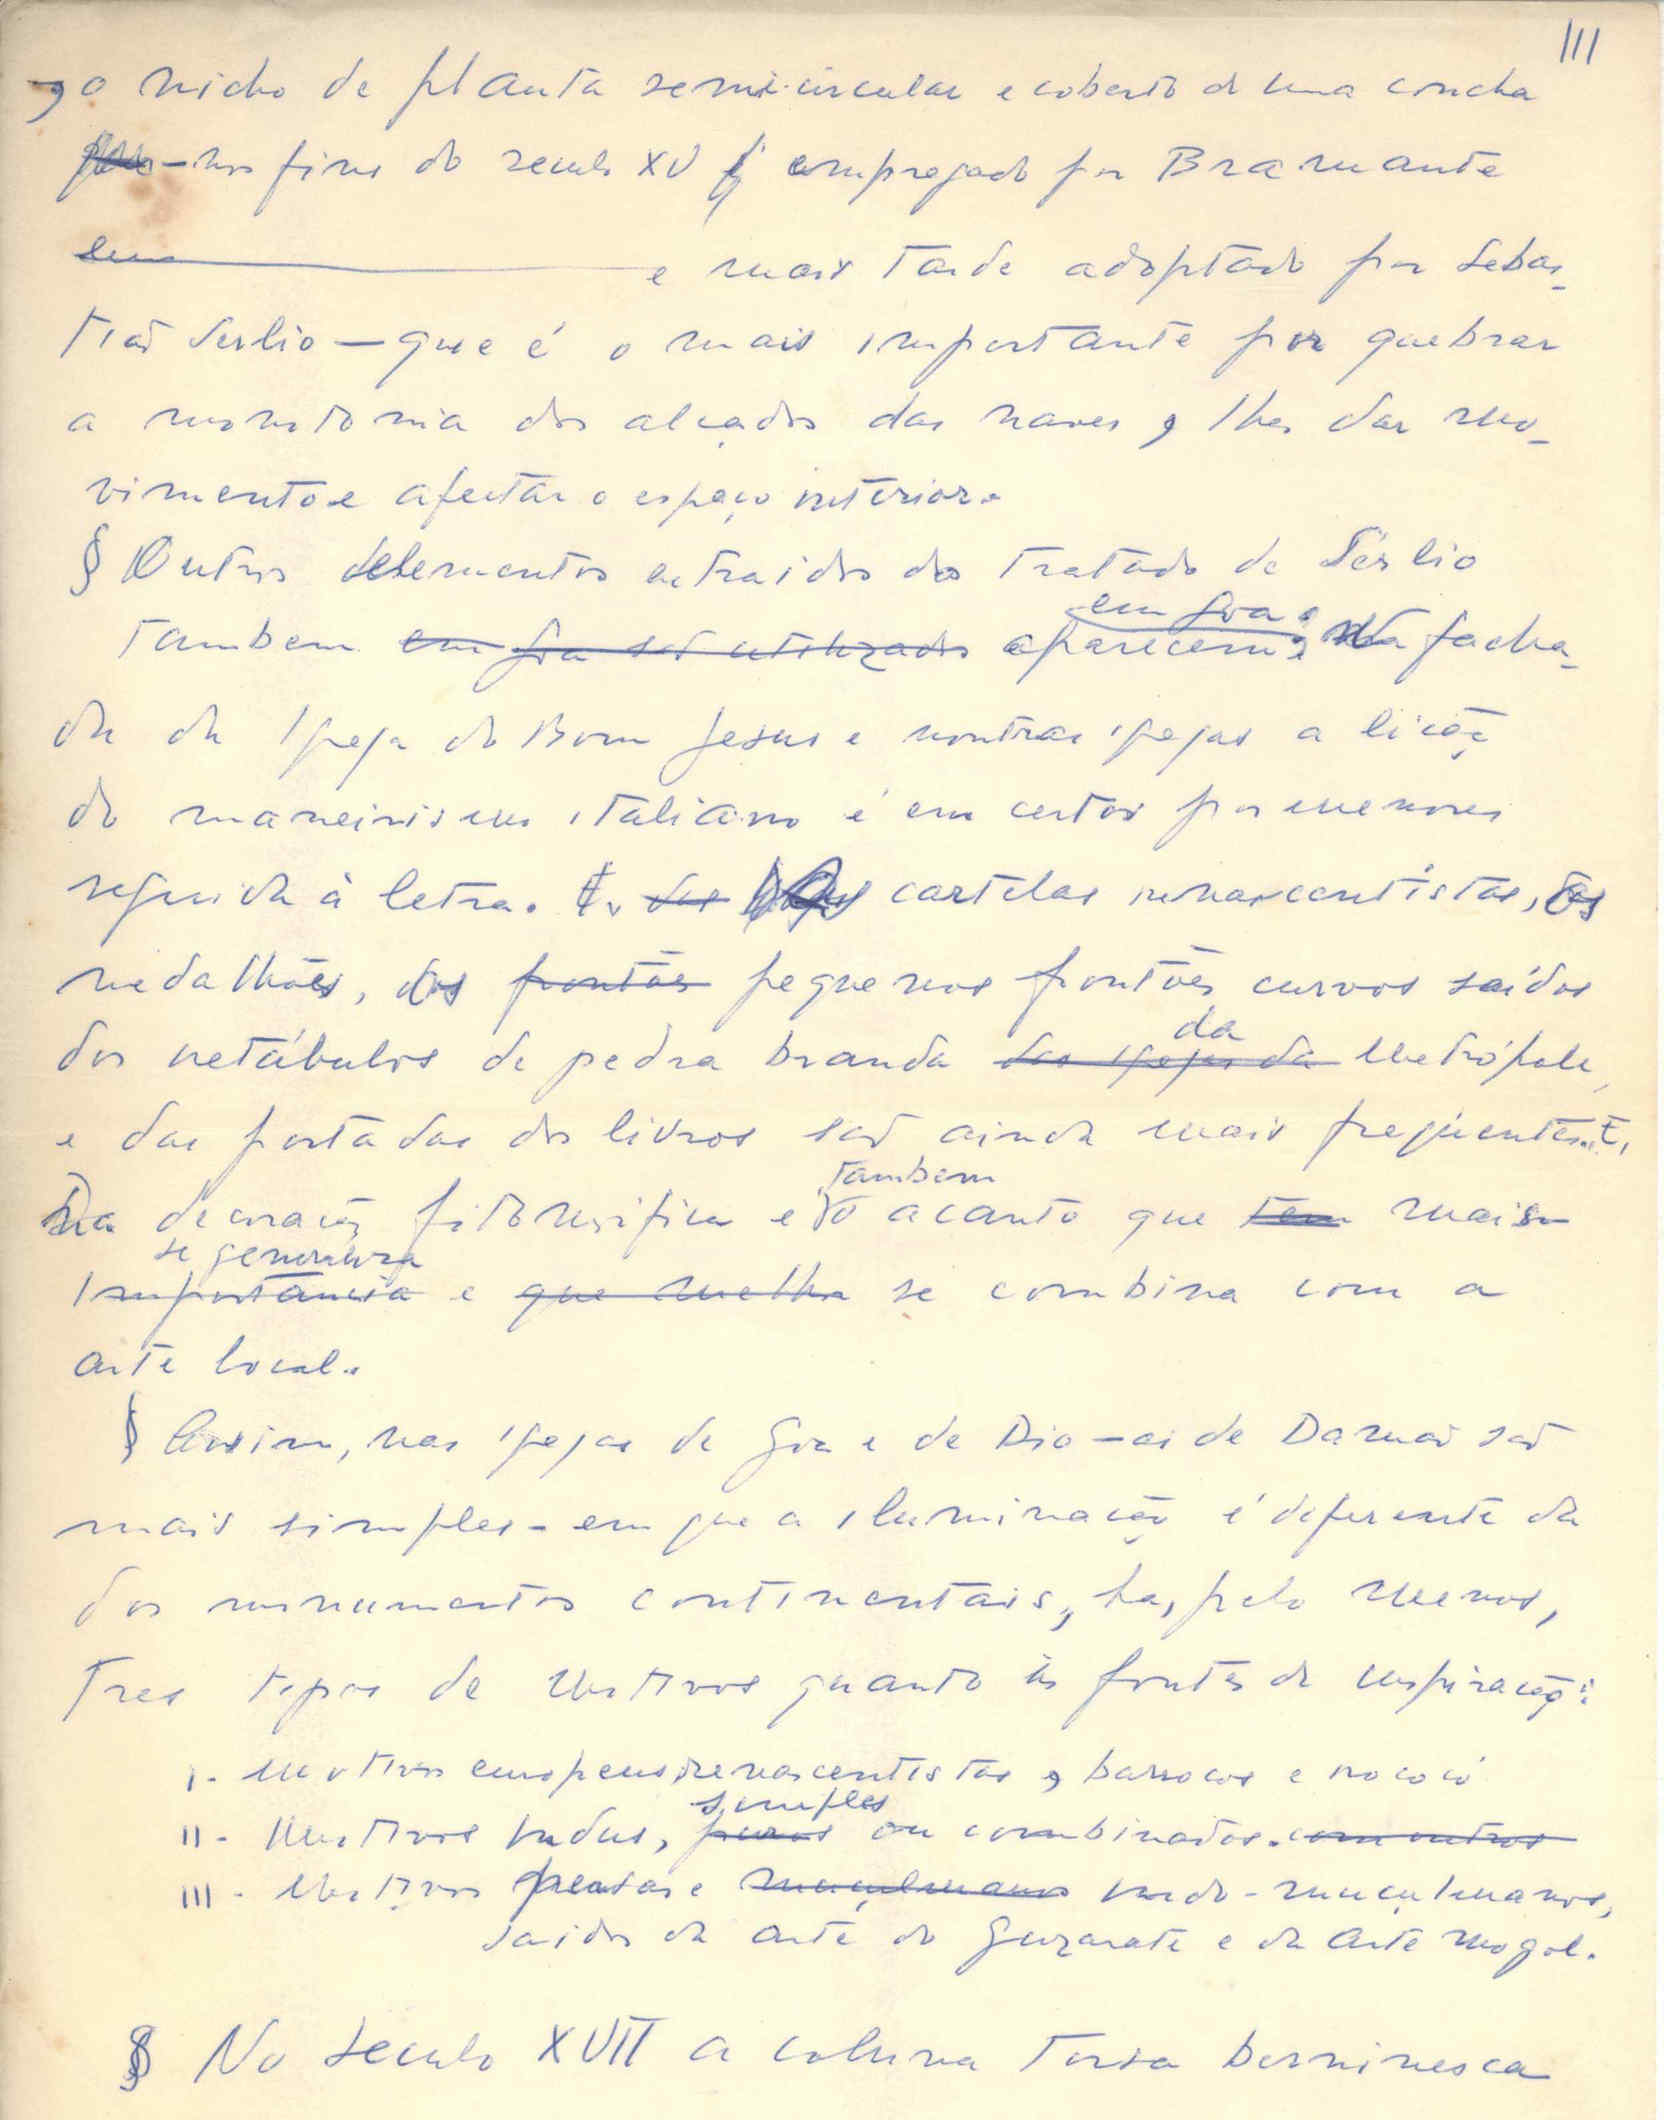 III
, o nicho de planta semi-circular e coberto de uma concha
– nos fins do seculo XV é empregado por Bramante
em e mais tarde adoptado por Sebas-
tião Serlio – que é o mais importante por quebrar
a monotonia dos alçados das naves, lhes dar mo-
vimento e afectar o espaço interior.
§ Outros elementos extraidos do tratado de Sérlio
em Goa:
tambem em Goa são utilizados aparecem; na facha-
da da Igreja do Bom Jesus e noutras igrejas a lição
do maneirismo italiano é em certos pormenores
seguida à letra. E, das cartelas renascentistas, os
medalhões, os frontões pequenos frontões curvos saídos
dos retábulos de pedra branda das igrejas da da Metrópole,
e das portadas dos livros são ainda mais freqüentes. E,
tambem
Na decoração fitomórfica é o acanto que tem mais
se generaliza
importância e que melhor se combina com a
arte local.
§ Assim, nas igrejas de Goa e de Dio – as de Damão são
mais simples – em que a iluminação é diferente da
dos monumentos continentais, ha, pelo menos,
tres tipos de motivos quanto às fontes de inspiração:
I - Motivos europeus, renascentistas, barrocos e rococó
simples
II - Motivos indus, puros ou combinados. com outros
III - Motivos persas e muçulmanos indo-muçulmanos,
saidos da arte do Guzarate e da arte mogol.
§ No seculo XVII a coluna torsa berninesca